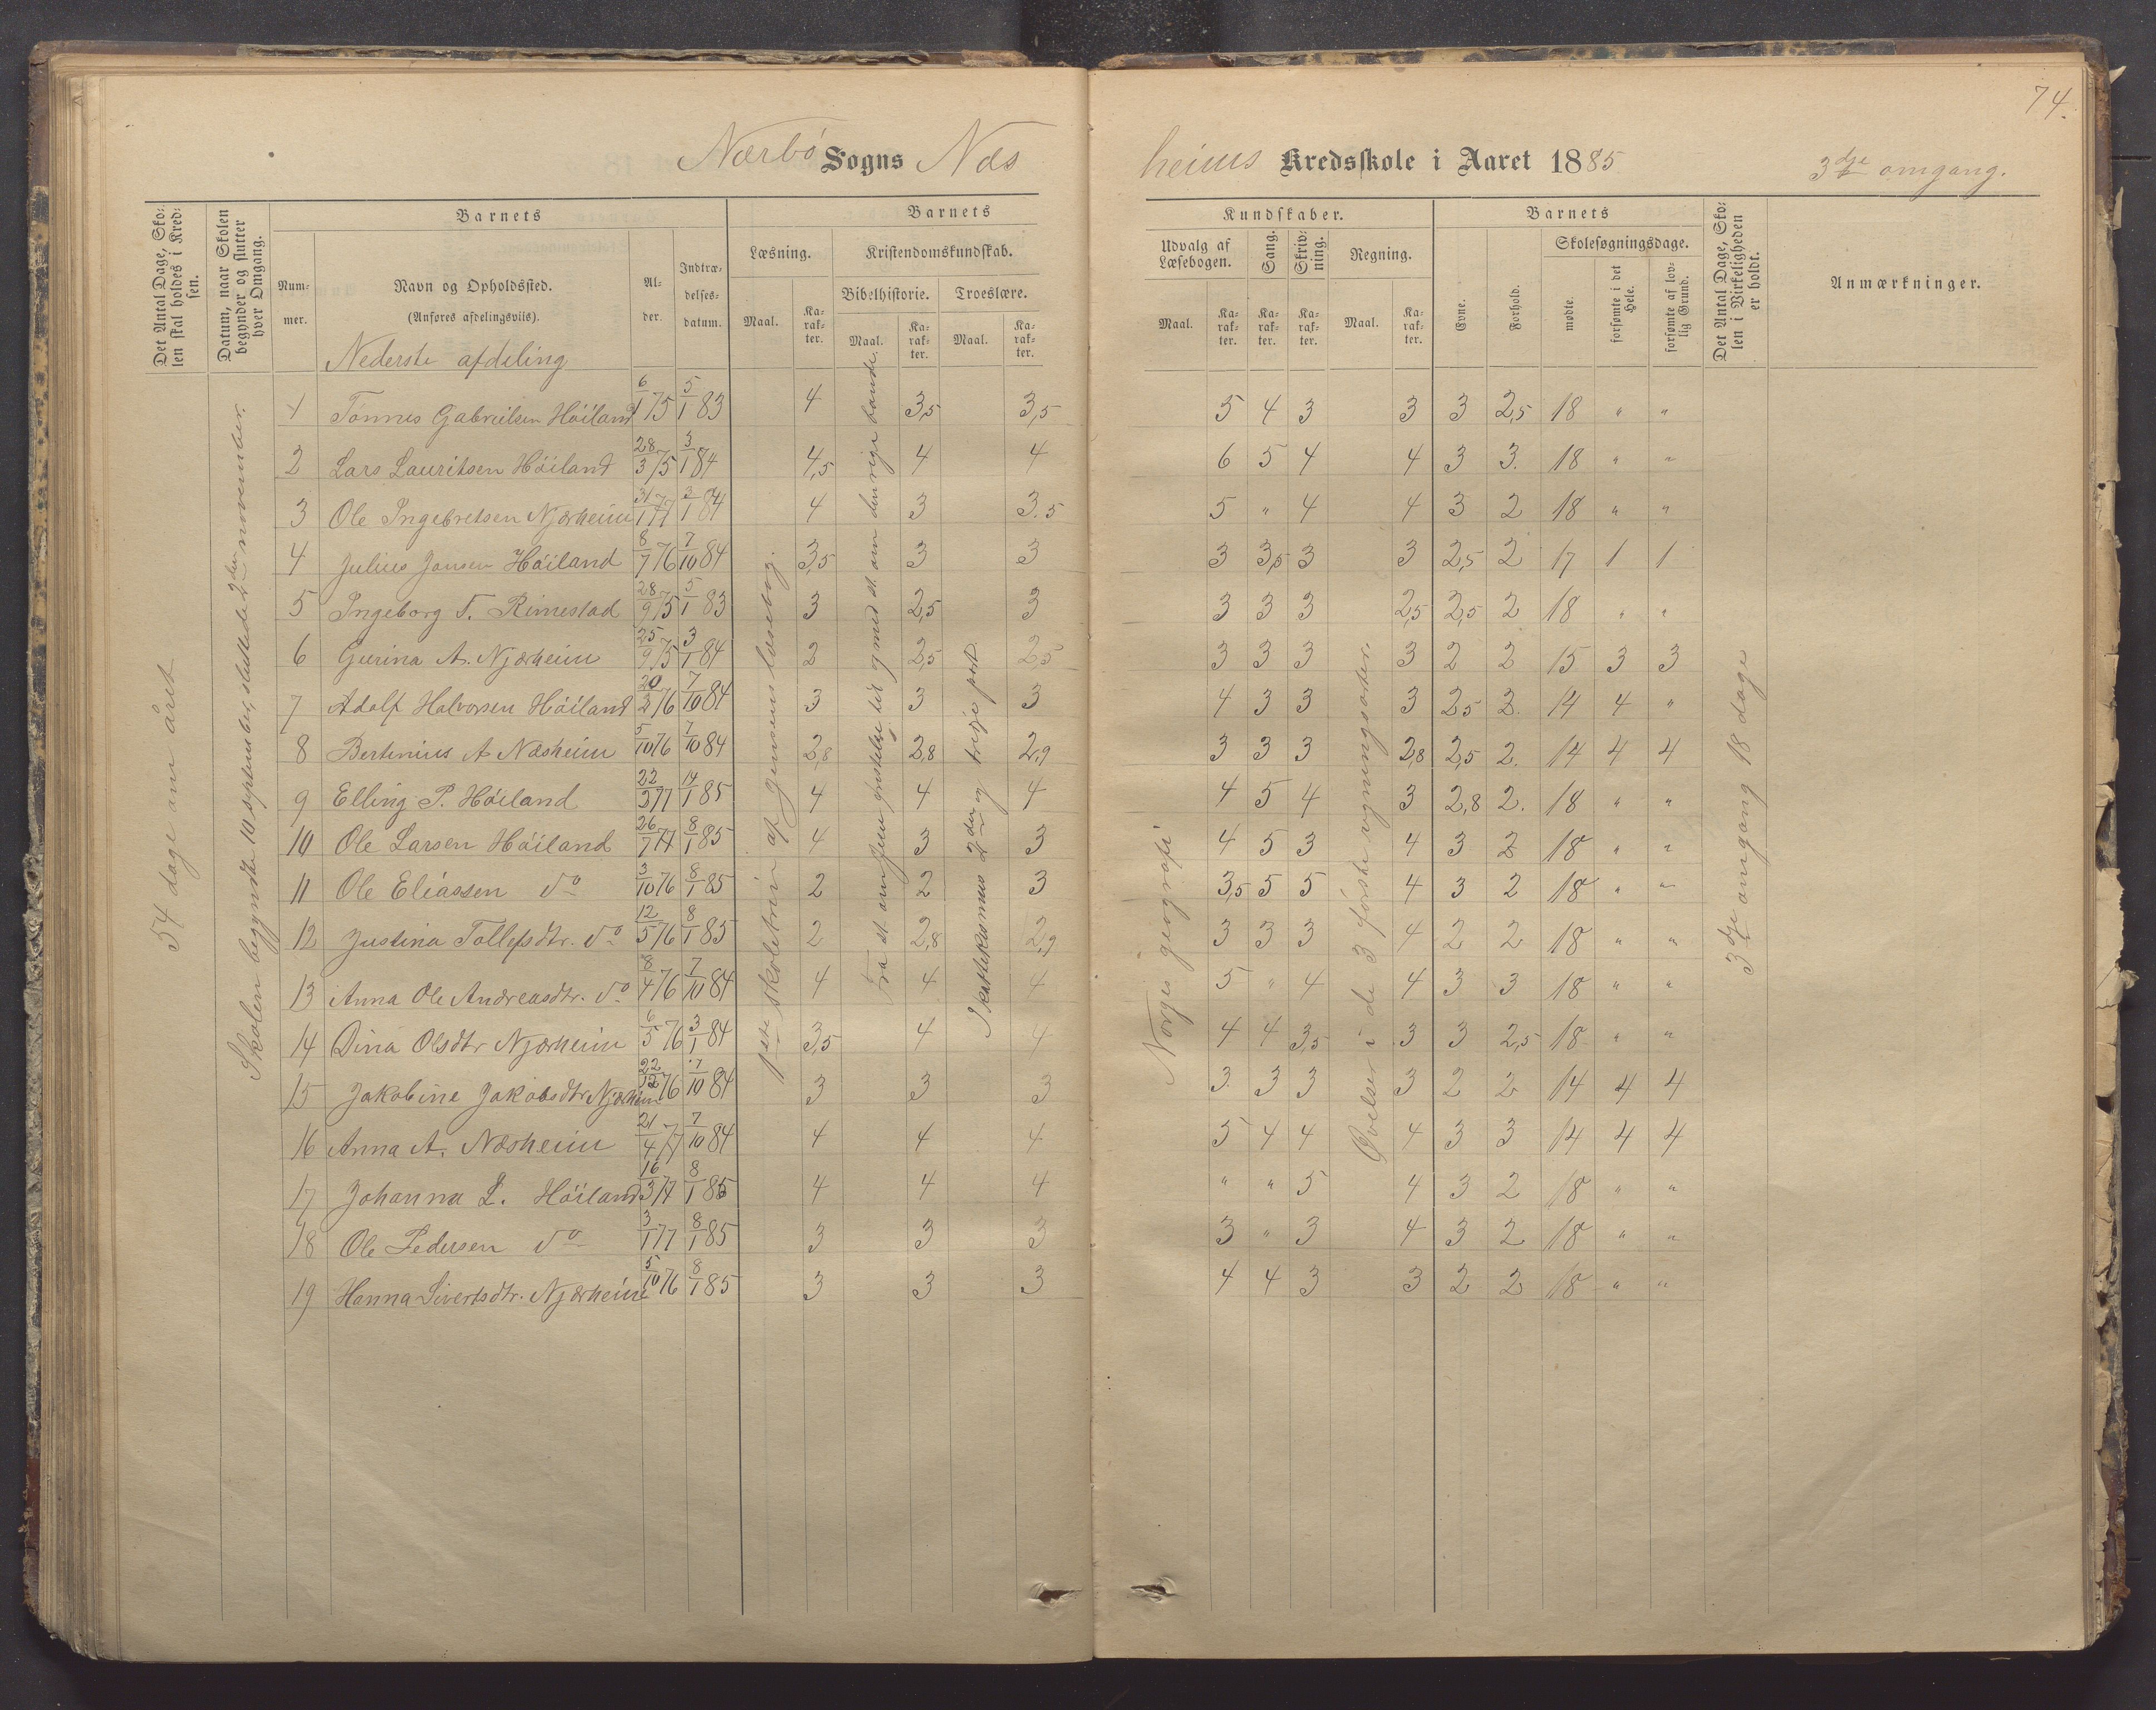 74.
Nærbö Sogns Næsheims Kredsskole i Aaret 1885 3dje omgang.
Det Antal Dage, Skolen skal holdes i Kredsen.
Datum, naar Skolen begynder og slutter hver Omgang.
Barnets
Nummer.
Navn og Opholdssted.
(Anføres afdelingsviis).
Alder.
Indtrædelsesdatum.
Barnets Kundskaber.
Læsning.
Maal. Karakter.
Kristendomskundskab.
Bibelhistorie. Troeslære.
Maal. Karakter. Maal. Karakter.
Udvalg af Læsebogen.
Maal. Karakter.
Sang. Karakter.
Skrivning. Karakter.
Regning.
Maal. Karakter.
Barnets
Evne. Forhold.
Skolesøgningsdage.
mødte. forsømte i det Hele. forsømte af lovlig Grund.
Det Antal Dage, Skolen i Virkeligheden er holdt.
Anmærkninger.
Nederste afdeling
54 dage om året
Skolen begyndte 10 september, sluttede 2den november.
1ste skoletrin af Jensens læsebog.
Skatekismus 2den og tredje part
Norges geografi
Øvelser i de 3 første regningsarter.
3dje omgang 18 dage
1 Tønnes Gabrielsen Höiland 6/1 75 5/1 83 4 3,5 3,5 5 4 3 3 3 2,5 18 " "
2 Lars Lauritsen Höiland 28/3 75 3/1 84 4,5 4 4 6 5 4 4 3 3. 18 " "
3 Ole Ingebretsen Njærheim 31/1 77 3/1 84 4 3 3.5 5 " 4 4 3 2 18 " "
4 Julius Jansen Höiland 8/7 76 7/10 84 3,5 3 3 3 3,5 3 3 2,5 2 17 1 1
5 Ingeborg T. Rimestad 28/9 75 5/1 83 3 2,5 3 3 3 3 2,5 2,5 2 18 " "
6 Gurina A. Njærheim 25/9 75 3/1 84 2 2,5 2,5 3 3 3 3 2 2 15 3 3
7 Adolf Halvorsen Höiland 20/2 76 7/10 84 3 3 3 4 3 3 3 2,5 2. 14 4 "
8 Bertinius A Næsheim 5/10 76 7/10 84 2,8 2,8 2,9 3 3 3 2,8 2,5 2. 14 4 4
9 Elling P. Höiland 22/3 77 14/1 85 4 4 4 4 5 4 3 2,8 2. 18 " "
10 Ole Larsen Höiland 26/7 77 8/1 85 4 3 3 4 5 3 4 3 2 18 " "
11 Ole Eliassen do 3/10 76 8/1 85 2 2 3 3,5 5 5 4 3 2 18 " "
12 Justina Tollefsdtr. do 12/5 76 8/1 85 2 2,8 2,9 3 3 3 4 2 2 18 " "
13 Anna Ole Andreasdtr. do 8/4 76 7/10 84 4 4 4 5 " 4 4 3 3 18 " "
14 Dina Olsdtr Njærheim 6/5 76 3/1 84 3,5 4 4 4 4 3,5 3 3 2,5 18 " "
15 Jakobine Jakobsdtr Njærheim 22/12 76 7/10 84 3 3 3 3 3 3 3 2 2 14 4 4
16 Anna A. Næsheim 21/4 77 7/10 84 4 4 4 5 4 4 4 3 3 14 4 4
17 Johanna L. Höiland 16/3 77 8/1 85 4 4 4 " " 5 4 3 2 18 " "
18 Ole Pedersen do 3/1 77 8/1 85 3 3 3 3 " 3 4 3 2 18 " "
19 Hanna Sivertsdtr. Njærheim 5/10 76 8/1 85 3 3 3 4 4 3 3 2 2 18 " "